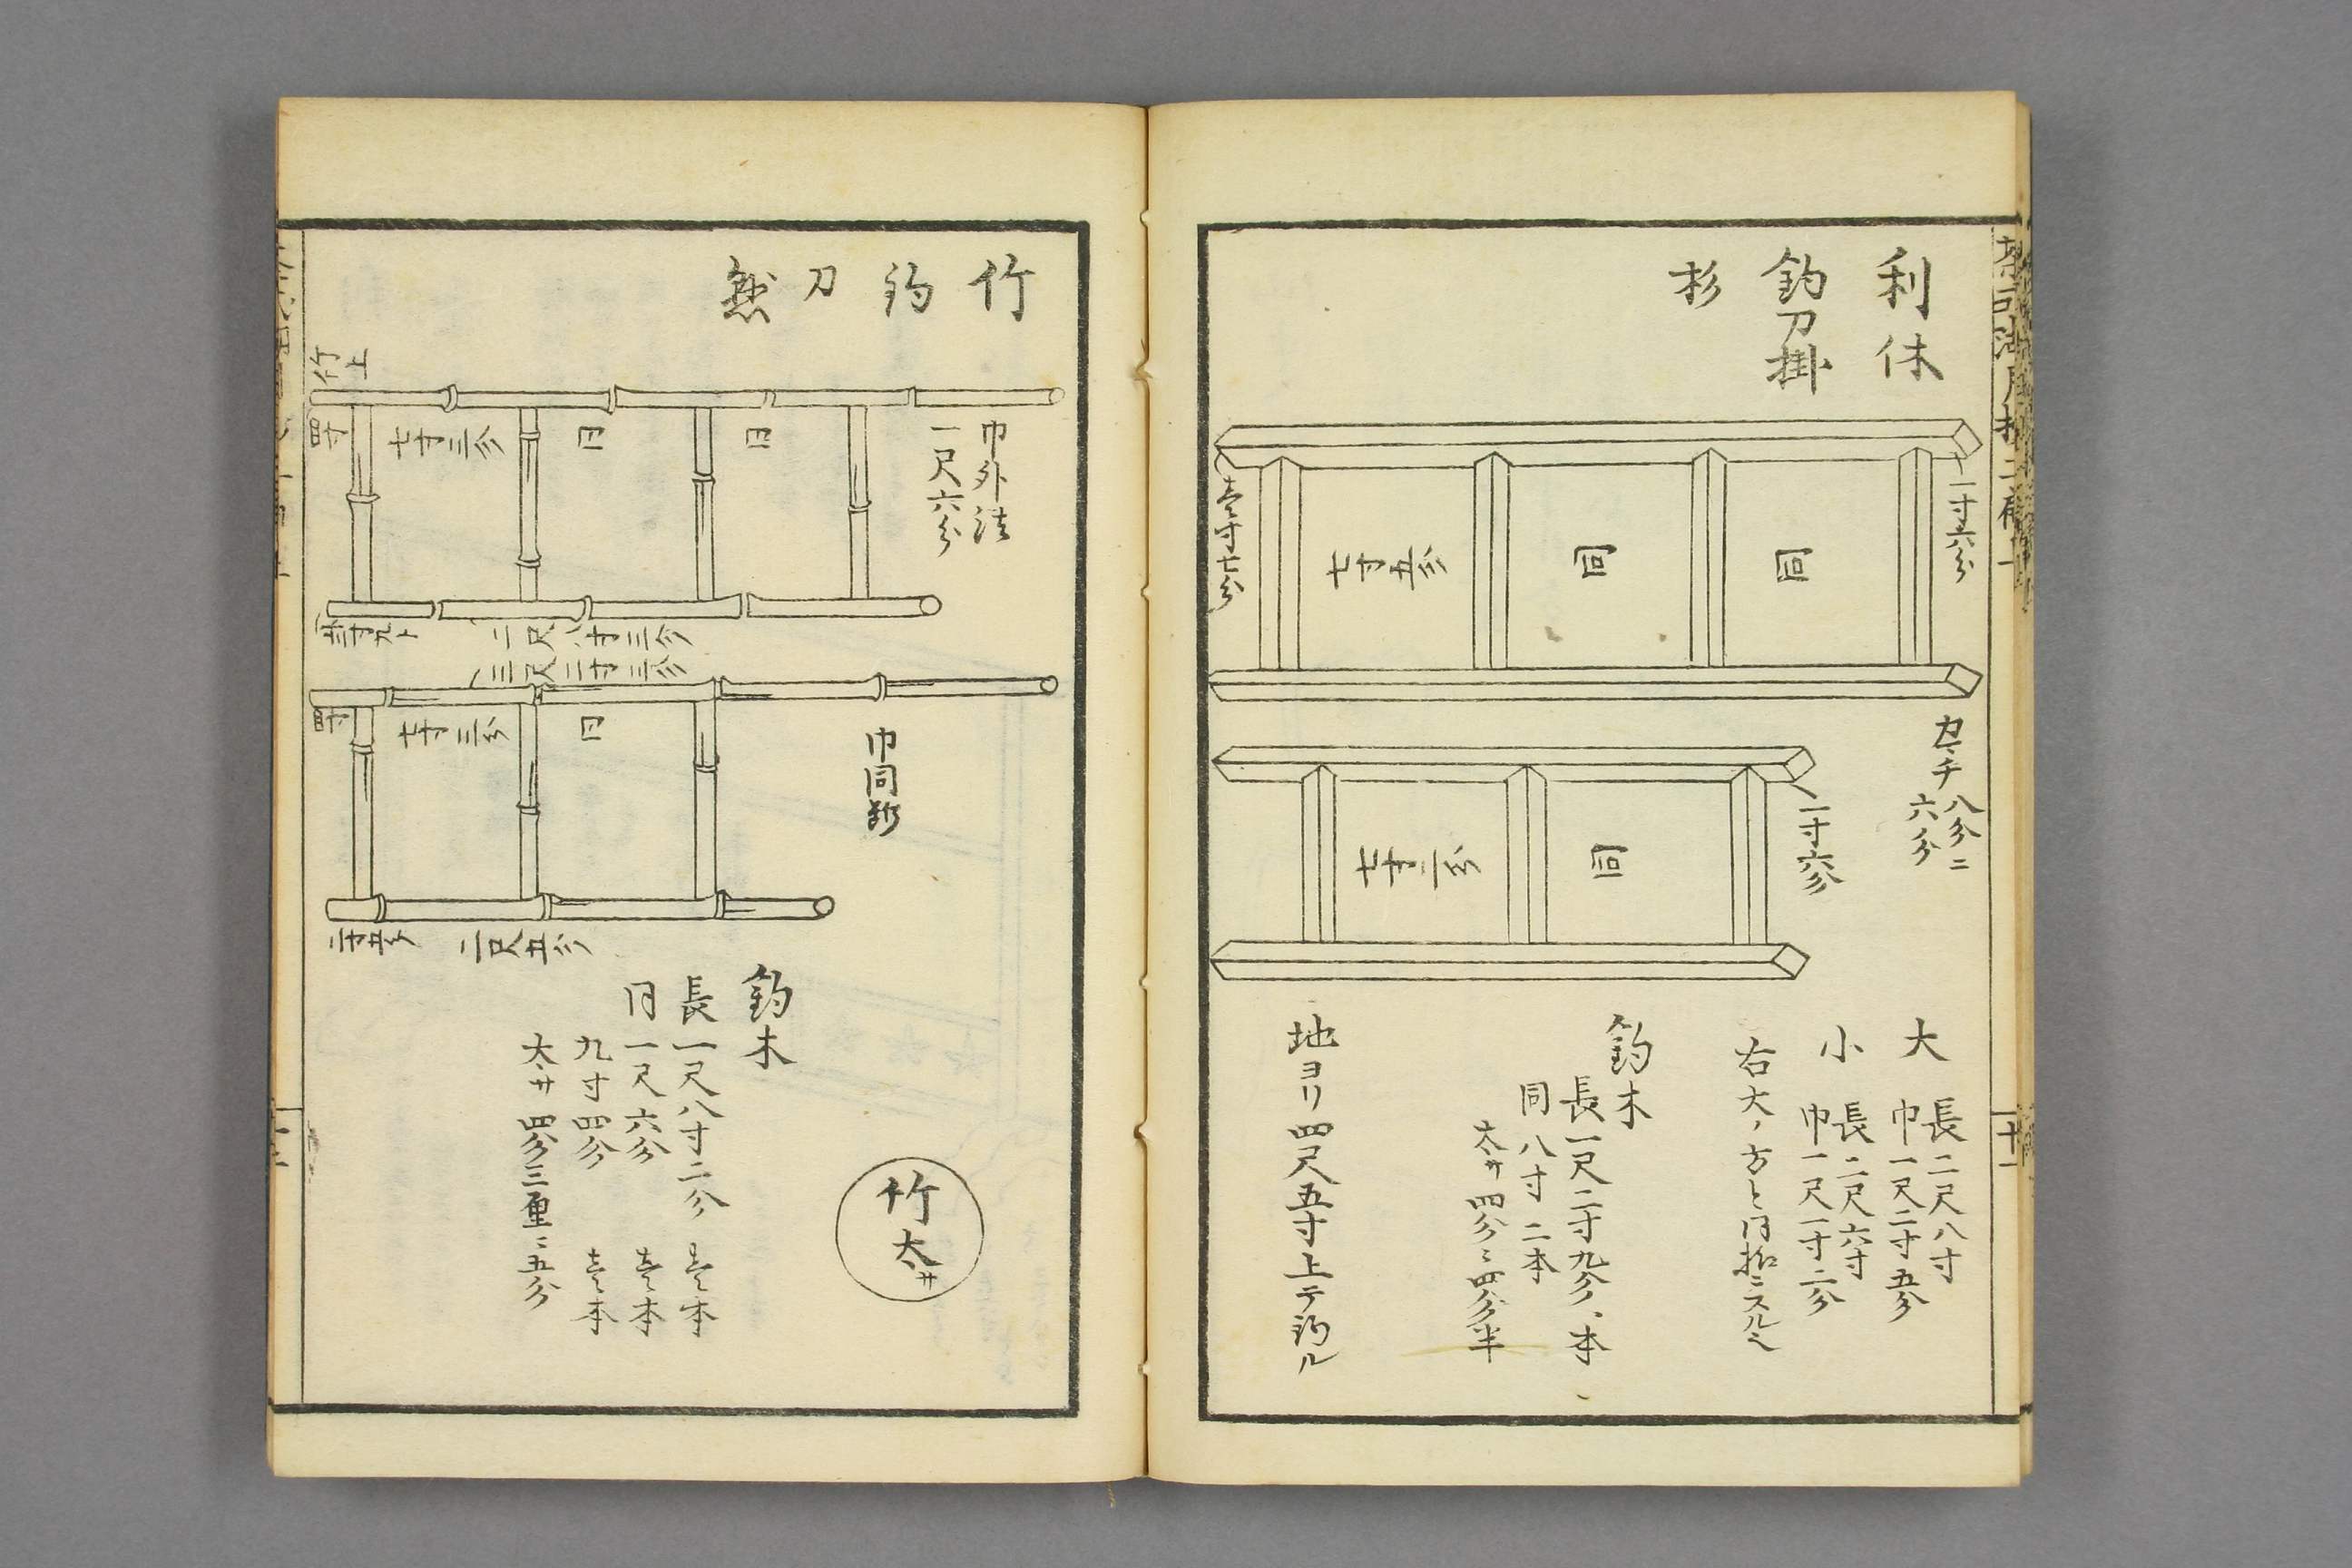 利休
釣刀掛
杉
一寸六分
同
同
七寸五分
壱寸七分
カマチ八分ニ
六分
一寸六分
同
七寸二分
大 長二尺八寸
巾一尺二寸五分
小 長二尺六寸
巾一尺一寸二分
右大ノ方と同拵ニスルヘ
釣木
長一尺二寸九分
同八寸二本
太サ四分ニ四分半
地ヨリ四尺五寸上テ釣ル
十一
竹
釣
刀
巾外法
一尺六分
竹上
四寸
七寸三分
同
同
二尺八寸三分
三尺二寸三分
四寸
七寸三分
同
巾同断
二寸五分
二尺五分
竹太サ
釣木
長一尺八寸二分 壱本
同一尺六分 壱本
九寸四分 壱本
太サ四分三厘ニ五分